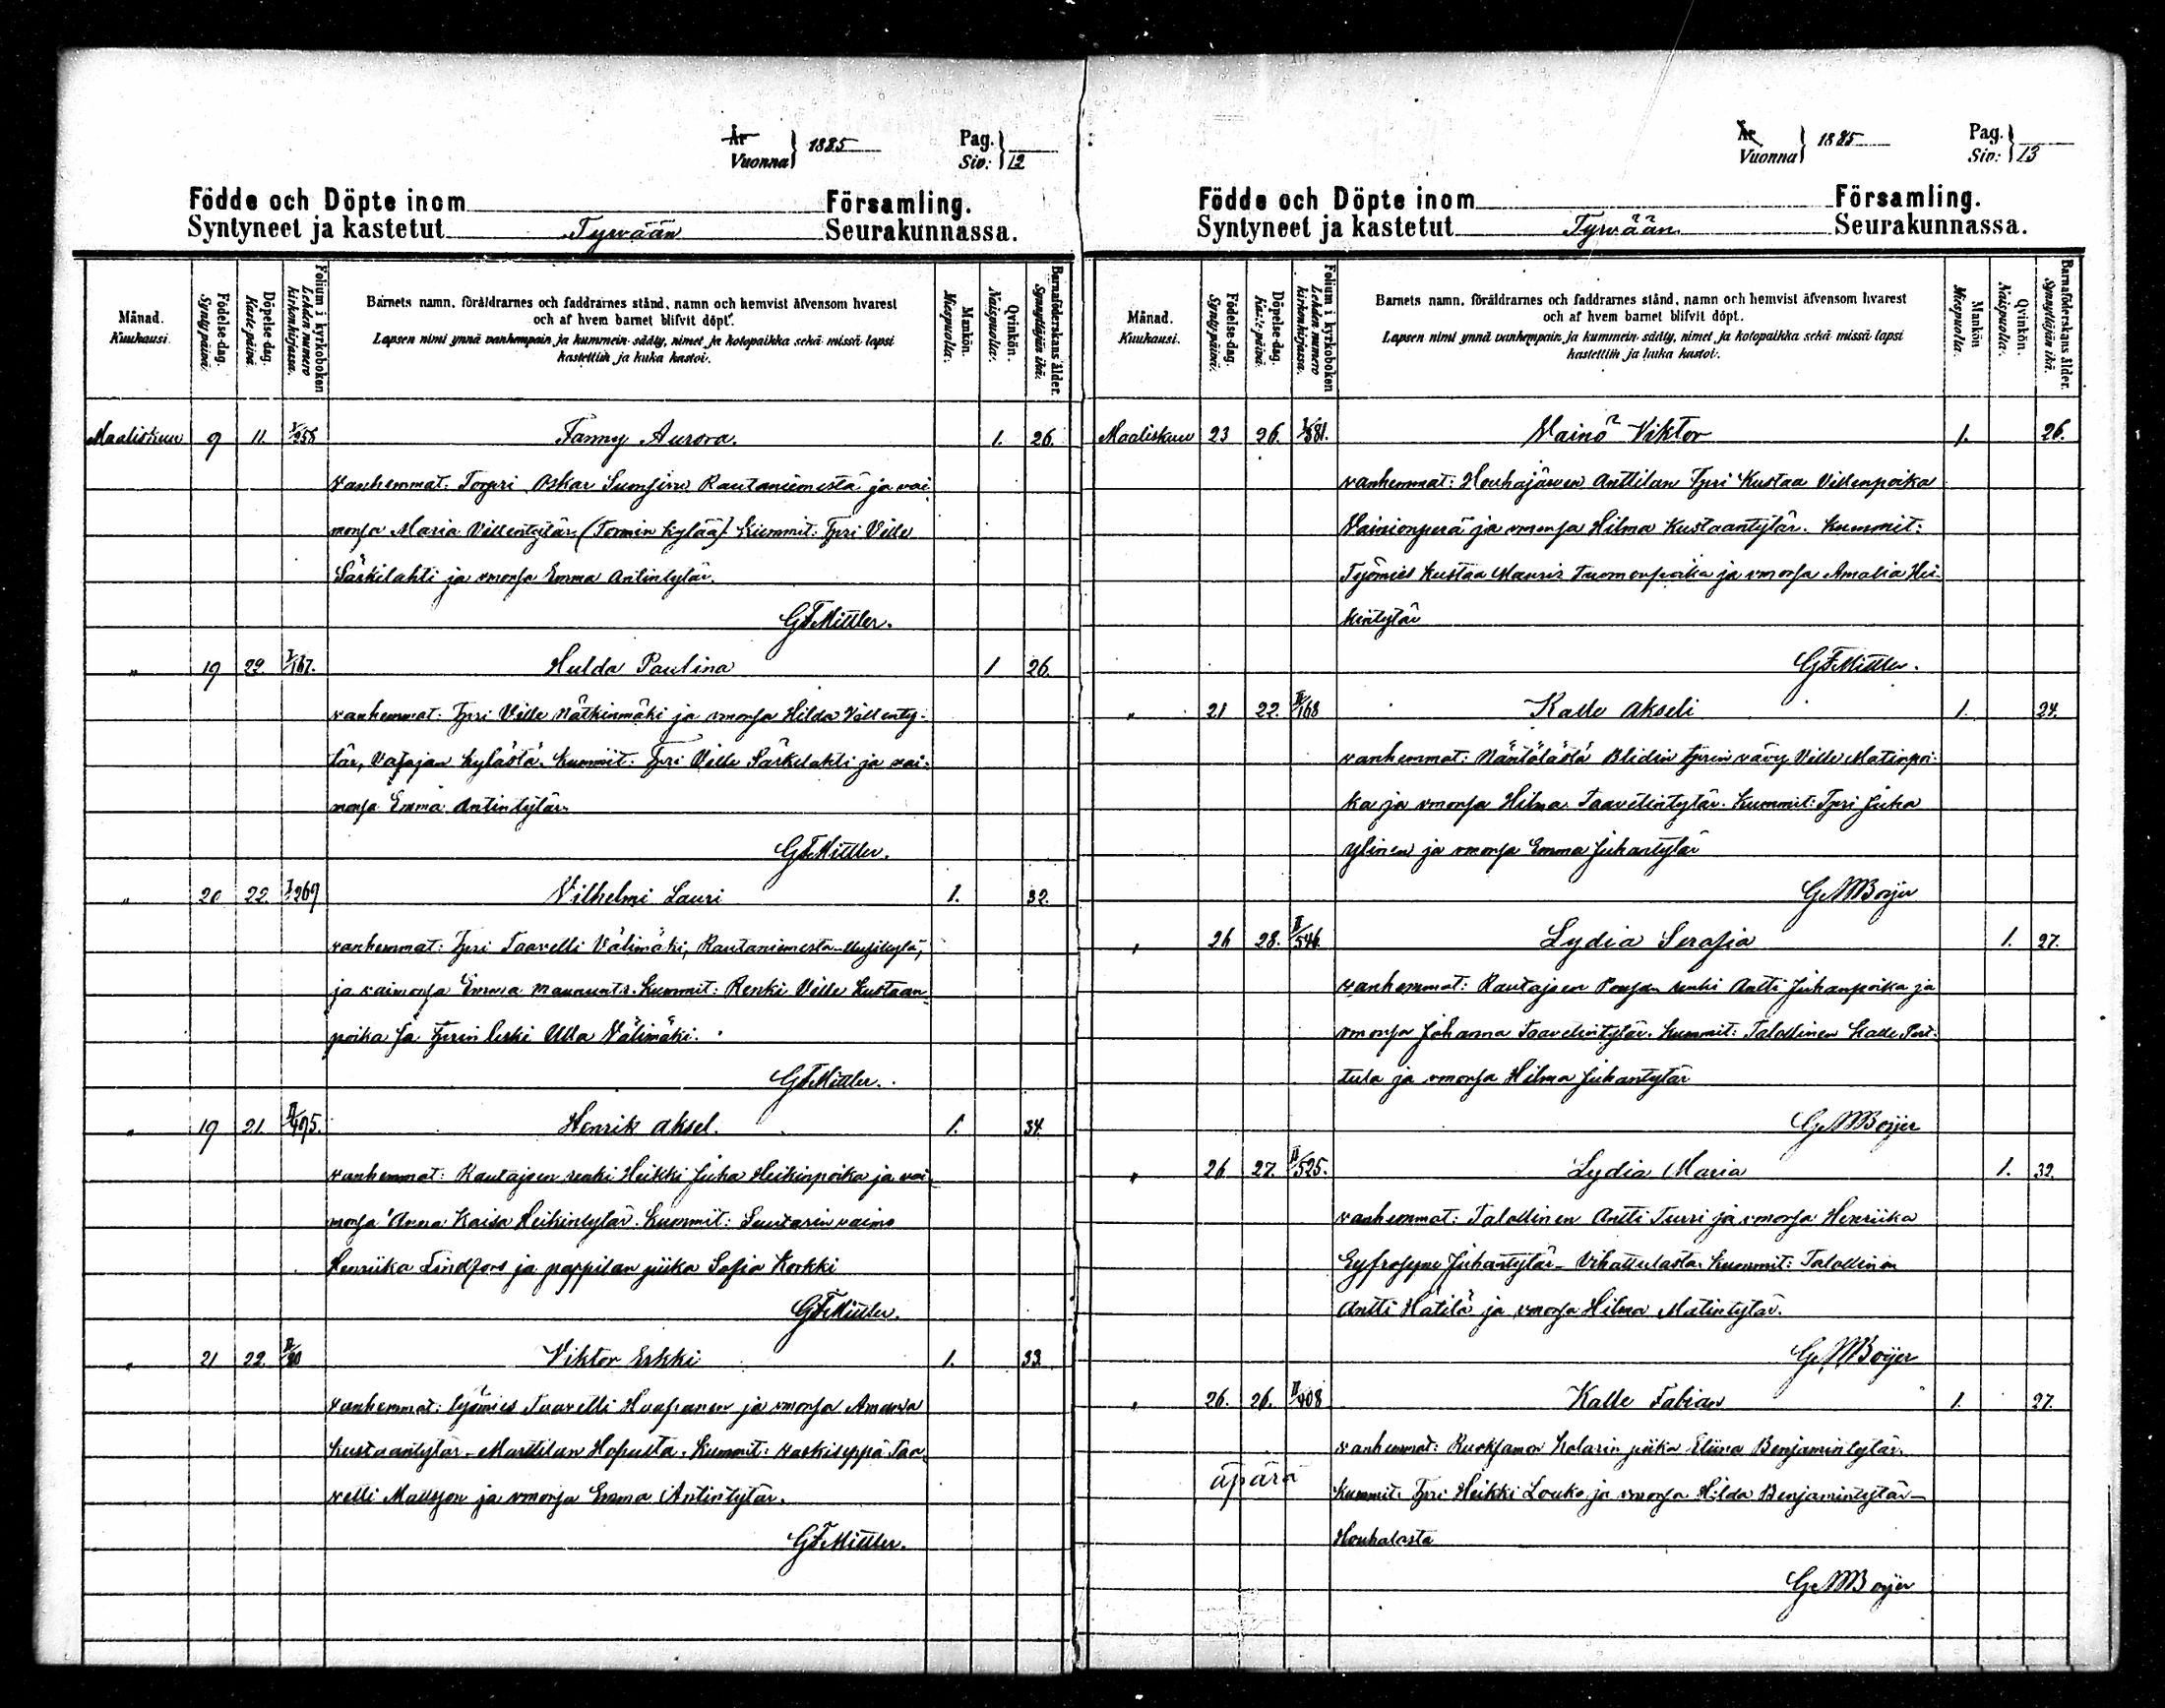 År
Vuonna } 1885
Pag.
Siv: } 12
Födde och Döpte inom Församling.
Syntyneet ja kastetut Tyrvään Seurakunnassa.
Månad.
Kuukausi.
Födelse-dag.
Syntypäivä.
Döpelse-dag.
Kastepäivä.
Folium i kyrkoboken
Lehden numero
kirkonkirjassa.
Barnets namn, föräldrarnes och faddrarnes stånd, namn och hemvist äfvensom hvarest
och af hvem barnet blifvit döpt.
Lapsen nimi ynnä vanhempain ja kummein sääty, nimet ja kotopaikka sekä missä lapsi
kastettiin ja kuka kastoi.
Mankön.
Miespuolia.
Qvinkön.
Naispuolia.
Barnaföderskans ålder.
Synnyttäjän ikä.
Maaliskuu 9 11. I/258 Fanny Aurora. 1. 26.
vanhemmat: Torpri Oskar Rautaniemestä ja vai-
monsa Maria Villentytär (Tormin kylää). Kummit: Tpri Ville
Särkilahti ja vmonsa Emma Antintytär.
GFMittler.
" 19 22. I/167. Hulda Paulina 1 26.
vanhemmat: Tpri Ville Nätkinmäki ja vmonsa Hilda Villenty-
tär, Vatajan kylästä. Kummit: Tpri Ville Särkilahti ja vai-
monsa Emma Antintytär.
GFMittler.
" 20 22. I/269 Vilhelmi Lauri 1. 32.
vanhemmat: Tpri Taavetti Välimäki, Rautaniemestä-Uusikylä,
ja vaimonsa Emma Maununt. Kummit: Renki Ville Kustaan-
poika ja Tprin leski Ulla Välimäki.
GFMittler.
" 19 21. II/495. Henrik Aksel. 1. 34.
vanhemmat: Rautajoen renki Heikki Juha Heikinpoika ja vai-
monsa Anna Kaisa Heikintytär. Kummit: Suutarin vaimo
Henriika Lindfors ja pappilan piika Sofia Korkki
GFMittler.
" 21 22. II/20 Viktor Erkki 1. 33.
vanhemmat: työmies Taavetti Haapanen ja vmonsa Amanda
Kustaantytär - Marttilan Hopusta. Kummit: vaskiseppä Taa-
vetti Mattsson ja vmonsa Emma Antintytär.
GFMittler.
År
Vuonna } 1885
Pag.
Siv: } 13
Födde och Döpte inom Församling.
Syntyneet ja kastetut Tyrvään Seurakunnassa.
Månad.
Kuukausi.
Födelse-dag.
Syntypäivä.
Döpelse-dag.
Kastepäivä.
Folium i kyrkoboken
Lehden numero
kirkonkirjassa.
Barnets namn, föräldrarnes och faddrarnes stånd, namn och hemvist äfvensom hvarest
och af hvem barnet blifvit döpt.
Lapsen nimi ynnä vanhempain ja kummein sääty, nimet ja kotopaikka sekä missä lapsi
kastettiin ja kuka kastoi.
Mankön
Miespuolia.
Qvinkön.
Naispuolia.
Barnaföderskans ålder.
Synnyttäjän ikä.
Maaliskuu 23 26. I/381. Väinö Viktor 1. 26.
vanhemmat: Houhajärven Anttilan Tpri Kustaa Villenpoika
Vainionperä ja vmonsa Hilma Kustaantytär. Kummit:
Työmies Kustaa Mauriz Tuomonpoika ja vmonsa Amalia Hei-
kintytär
GFMittler.
" 21 22. II/168 Kalle Akseli 1. 24.
vanhemmat: Näntölästä Blidin tprin vävy Ville Matinpoi-
ka ja vmonsa Hilma Taavetintytär. Kummit: Tpri Juha
Ylinen ja vmonsa Emma Juhantytär
G. M Boijer
" 26 28. II/546 Lydia Serafia 1. 27.
vanhemmat: Rautajoen renki Antti Juhanpoika ja
vmonsa Johanna Taavetintytär. Kummit: Talollinen Kalle Pert-
tula ja vmonsa Hilma Juhantytär
G. M Boijer
" 26 27. II/525. Lydia Maria 1. 32.
vanhemmat: Talollinen Antti Turri ja vmonsa Henriika
Eyfrosyne Juhantytär - Vihattulasta. Kummit: Talollinen
Antti Hätilä ja vmonsa Hilma Matintytär.
G. M Boijer
" 26. 26. II/408 Kalle Fabian 1. 27.
vanhemmat: piika Eliina Benjamintytär.
äpärä
Kummit: Tpri Heikki Louko ja vmonsa Hilda Benjamintytär -
Houhalasta
G. M Boijer